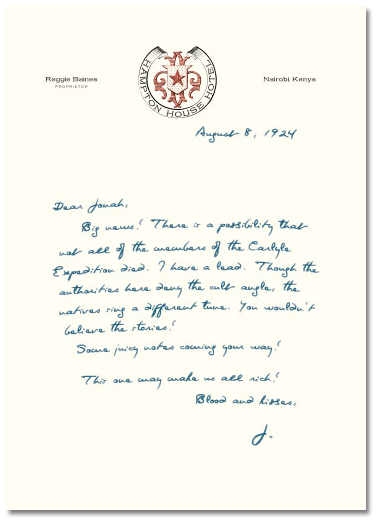 Reggie Baines
PROPRIETOR
HAMPTON HOUSE HOTEL
Nairobi Kenya
August 8, 1924
Dear Jonah:
Big news! There is a possibility that
not all of the members of the Carlyle
Expedition died. I have a lead. Though the
authorities here deny the cult angle, the
natives sing a different tune. You wouldn't
believe the stories!
Some juicy notes coming your way!
This one may make us all rich!
Blood and kisses,
J.